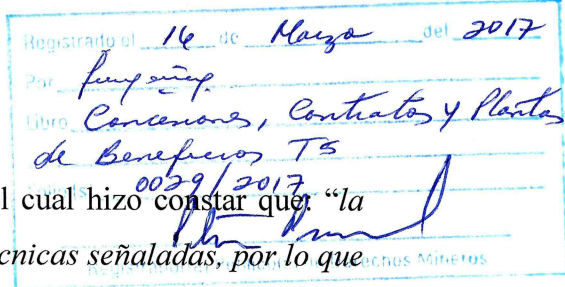 Registrado el 16 de Marzo del 2017
Por
Libro Concesiones, Contratos y Plantas
de Beneficios T5
0029/2017
l cual hizo constar que: “la
cnicas señaladas, por lo que
Derechos Mineros